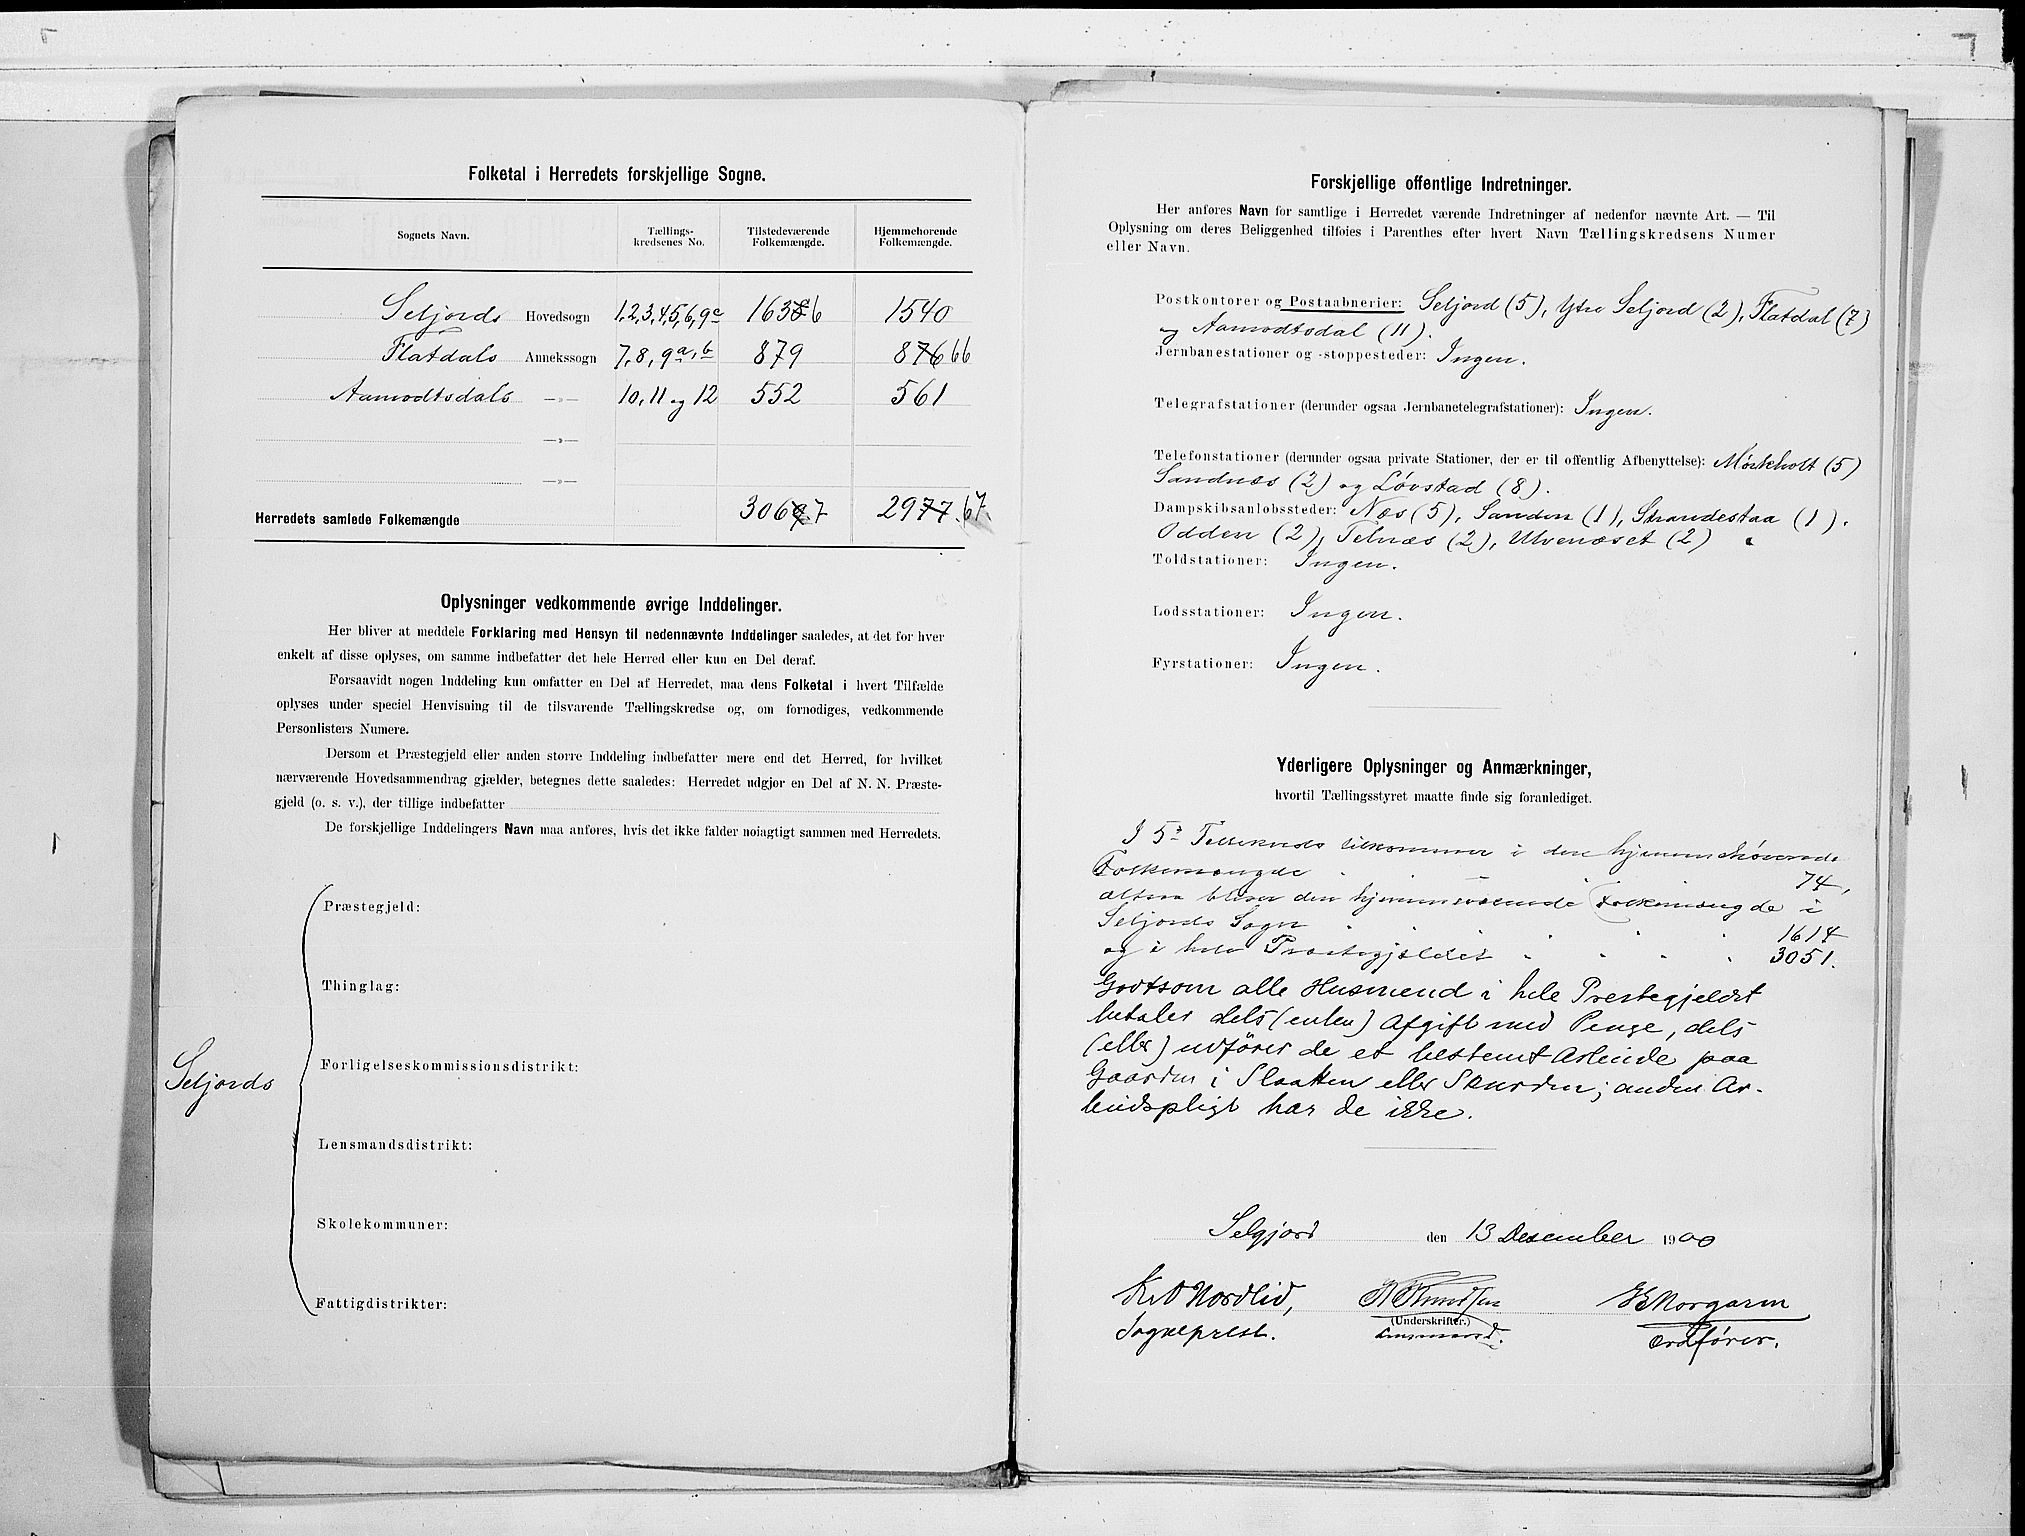 Folketal i Herredets forskjellige Sogne.
Sognets Navn. Tællings-kredsenes No. Tilstedeværende Folkemængde. Hjemmehørende Folkemængde.
Seljords Hovedsogn 1,2,3,4,5,6,9c 16386 1540
Flatdals Annekssogn 7,8,9a,b 879 87666
Aamodtsdals —„— 10, 11 og 12 552 561
—„—
—„—
Herredets samlede Folkemængde 30697 2977.67.
Oplysninger vedkommende øvrige Inddelinger.
Her bliver at meddele Forklaring med Hensyn til nedennævnte Inddelinger saaledes, at det for hver
enkelt af disse oplyses, om samme indbefatter det hele Herred eller kun en Del deraf.
Forsaavidt nogen Inddeling kun omfatter en Del af Herredet, maa dens Folketal i hvert Tilfælde
oplyses under speciel Henvisning til de tilsvarende Tællingskredse og, om fornødiges, vedkommende
Personlisters Numere.
Dersom et Præstegjeld eller anden større Inddeling indbefatter mere end det Herred, for hvilket
nærværende Hovedsammendrag gjælder, betegnes dette saaledes: Herredet udgjør en Del af N. N. Præste-
gjeld (o. s. v.), der tillige indbefatter
De forskjellige Inddelingers Navn maa anføres, hvis det ikke falder nøiagtigt sammen med Herredets.
Præstegjeld:
Thinglag:
Forligelseskommissionsdistrikt:
Seljords
Lensmandsdistrikt:
Skolekommuner:
Fattigdistrikter:
Forskjellige offentlige Indretninger.
Her anføres Navn for samtlige i Herredet værende Indretninger af nedenfor nævnte Art. — Til
Oplysning om deres Beliggenhed tilføies i Parenthes efter hvert Navn Tællingskredsens Numer
eller Navn.
Postkontorer og Postaabnerier: Seljord (5), Ytre Seljord (2), Flatdal (7)
og Aamodtsdal (11).
Jernbanestationer og -stoppesteder: Ingen.
Telegrafstationer (derunder ogsaa Jernbanetelegrafstationer): Ingen.
Telefonstationer (derunder ogsaa private Stationer, der er til offentlig Afbenyttelse): Mørkholt (5)
Sandnæs (2) og Løvstad (8).
Dampskibsanløbssteder: Næs (5), Sanden (1), Strandestaa (1).
Odden (2), Telnæs (2), Ulvenæset (2)
Toldstationer: Ingen.
Lodsstationer: Ingen.
Fyrstationer: Ingen.
Yderligere Oplysninger og Anmærkninger,
hvortil Tællingsstyret maatte finde sig foranlediget.
I 5te Tællekreds tilkommer i den hjemmehørende
Folkemængde 74,
altsaa bliver den hjemmeværende Folkemængde i
Seljords Sogn 1614
og i hele Præstegjeldet 3051.
Godtsom alle Husmænd i hele Prestegjeldet
betaler dels (enten) Afgift med Penge, dels
(eller) udfører de et bestemt Arbeide paa
Gaarden i Slaatten eller Skurden; anden Ar-
beidspligt har de ikke.
Selgjord den 13 Desember 1900
K. O Nordlid, Knudsen Morgarm
(Underskrifter.)
Sogneprest. Lensmand. Ordfører.